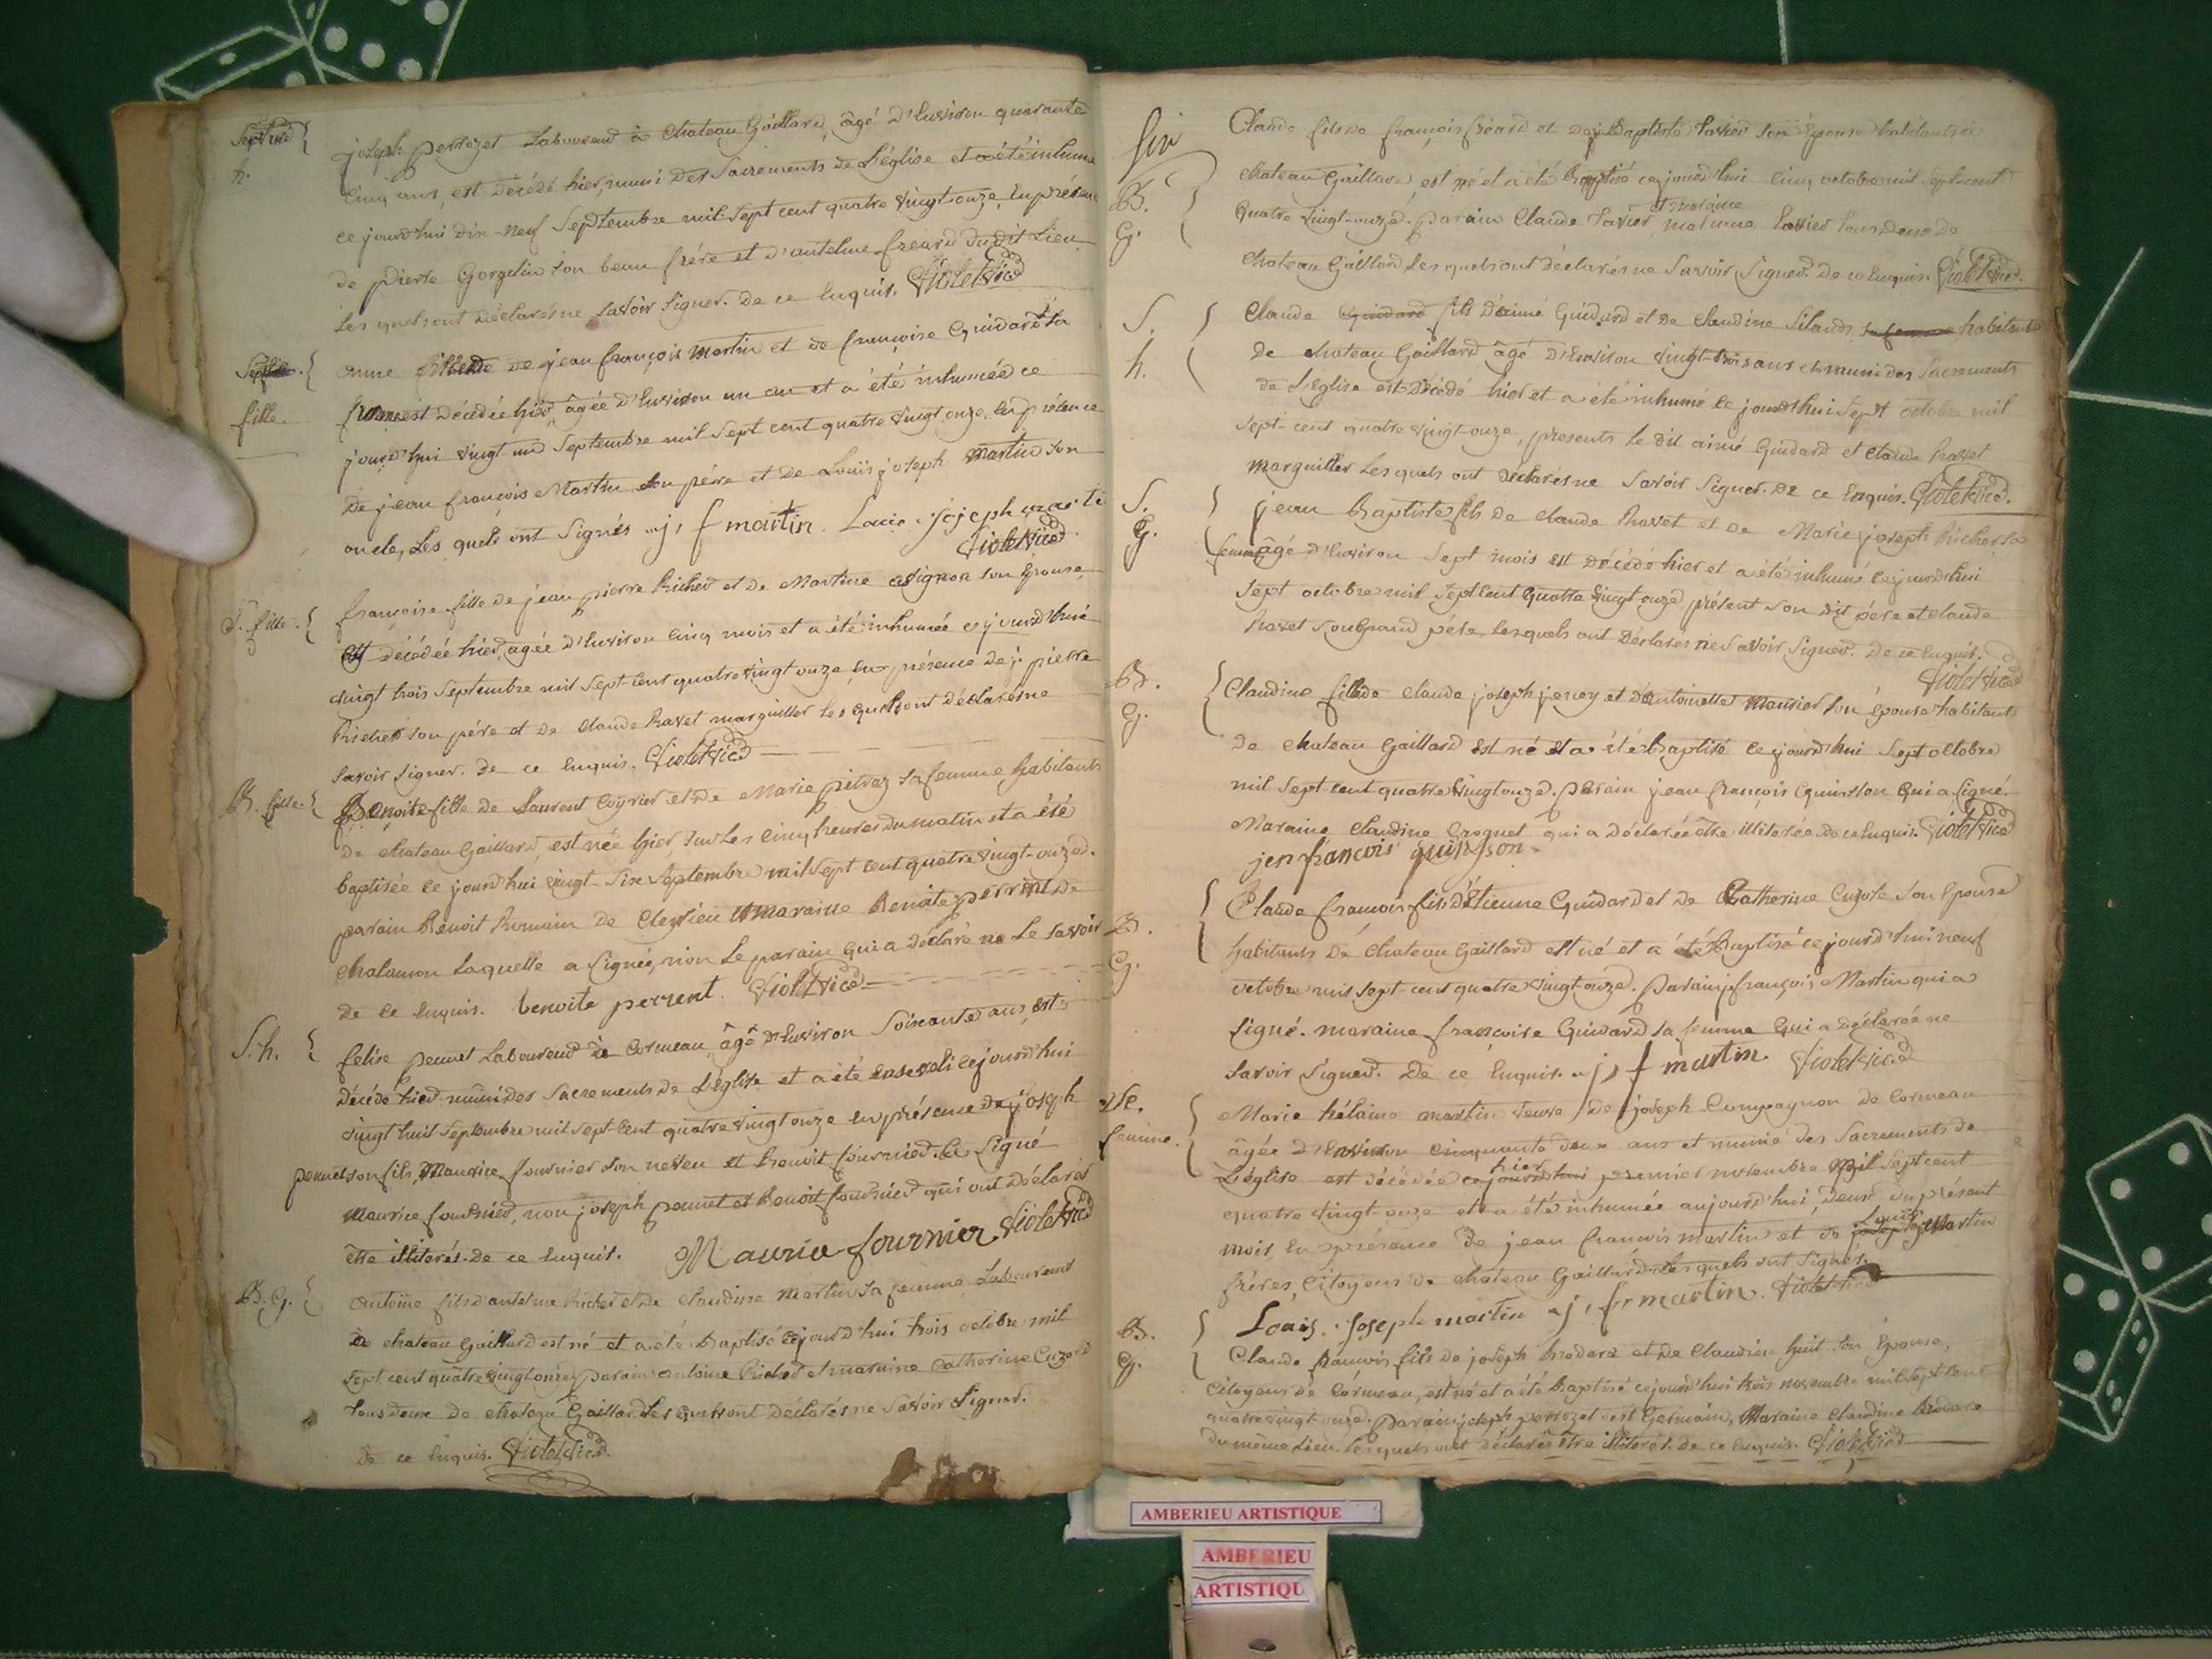 Sepulture
h.
joseph perrozet Laboureur à Chateau Gaillard, âgé d'environ quarante
cinq ans, est décédé hier, muni des Sacrements de L'église et a été inhumé
ce jourd'hui dix neuf Septembre mil Sept cent quatre vingt onze, en présence
de pierre Gorgelin son beau frère et d'antelme freard du dit Lieu
Les quels ont déclarés ne Savoir Signer. de ce Enquis. Violet vic.
fille.
anne fille de jean françois Martin et de françoise Guidard sa
femme est décédée hier, âgée d'environ un an et a été inhumée ce
jourd'hui vingt un Septembre mil Sept cent quatre vingt onze, en présence
de jean françois Martin son père et de Louis joseph Martin son
oncle, Les quels ont Signés. j, f martin. Louis. Joseph marti
Violet vic.
S. fille.
françoise fille de jean pierre Richer et de Martine son Epouse,
est décédée hier, agée d'environ cinq mois et a été inhumée ce jourd'hui
vingt trois Septembre mil Sept-cent quatre vingt onze, en présence de j. pierre
Richer son père et de Claude havet marguiller les quels ont déclarés ne
Savoir Signer. de ce Enquis. Violet vic.
B. fille.
Benoite fille de Laurent Coyrier et de Marie sa femme habitants
de chateau Gaillard, est née hier, Sur Les cinq heures du matin et a été
baptisée ce jourd'hui vingt-Six Septembre mil Sept cent quatre vingt-onze.
parain Benoit Romain de Cleyzieu et maraine Benoite perrent de
chalamon laquelle a Signée, non Le parain qui a déclaré ne Le Savoir
de ce Enquis. benoite perrent. Violet vic.
S. h.
felix pennet Laboureur de Cormeau, âgé d'Environ Soixante ans, est
décédé hier muni des Sacrements de L'église et a été enseveli ce jourd'hui
vingt huit Septembre mil Sept-cent quatre vingt onze en présence de joseph
pennet son fils, Maurice fournier son neveu et Benoit fournier. a Signé
Maurice fournier, non joseph pennet et Benoit fournier qui ont déclarés
être illiterés. de ce Enquis. Maurice fournier Violet vic.
B. G.
Antoine fils d'antelme Richer et de Claudine Martin sa femme Laboureurs
de chateau Gaillard est né et a été Baptisé ce jourd'hui trois octobre mil
Sept cent quatre vingt onze, parain antoine Richer et maraine Catherine
tous deux de chateau Gaillard Les quels ont déclarés ne Savoir Signer.
de ce Enquis. Violet vic.
B.
G.
Claude fils de françois fréard et de j. Baptiste Son Epouse habitants à
chateau Gaillard, est né et a été Baptisé ce jourd'hui cinq octobre mil Sept-cent
et maraine
quatre vingt-onze. parain Claude tous deux de
chateau Gaillard Les quels ont déclarés ne Savoir Signer. de ce Enquis. Violet vic.
S.
h.
Claude Guidard fils d'aimé Guidard et de Claudine Silands, sa femme habitants
de chateau Gaillard âgé d'Environ vingt-trois ans et muni des Sacrements
de L'église est décédé hier et a été inhumé ce jourd'hui Sept octobre mil
Sept-cent quatre vingt-onze, présents le dit aimé Guidard et Claude havet
Marguiller Les quels ont déclarés ne Savoir Signer. de ce Enquis. Violet vic.
S.
G.
jean Baptiste fils de Claude havet et de Marie joseph Richer sa
femme, âgé d'Environ Sept mois est décédé hier et a été inhumé ce jourd'hui
Sept octobre mil Sept cent quatre vingt onze présent Son dit père et Claude
havet Son Grand père, Les quels ont déclarés ne Savoir Signer. de ce Enquis.
Violet vic.
B.
G.
Claudine fille de Claude joseph et d'antoinette Son Epouse habitants
de chateau Gaillard est né et a été Baptisé ce jourd'hui Sept octobre
mil Sept cent quatre vingt onze. parain jean françois Guinsson qui a Signé.
Maraine Claudine qui a déclarée être illiterée. de ce Enquis. Violet vic.
jen françois guinsson.
B.
G.
Claude françois fils d'étienne Guidard et de Catherine Son Epouse
habitants de Chateau Gaillard est né et a été Baptisé ce jourd'hui neuf
octobre mil Sept-cent quatre vingt-onze. parain j. françois Martin qui a
Signé. maraine françoise Guidard sa femme qui a déclarée ne
Savoir Signer. de ce Enquis. j, f martin. Violet vic.
femme.
Marie hélaine martin veuve de joseph Compagnon de Cormeau
âgée d'Environ cinquante deux ans et munie des Sacrements de
hier
L'église est décédée ce jourd'hui premier novembre Mil Sept cent
quatre vingt-onze et a été inhumée aujourd'hui, deux du présent
Louis
mois, En présence de jean françois martin et de joseph Martin
frères, Citoyens de chateau Gaillard Les quels ont Signés.
Louis. Joseph martin j, fr martin. Violet vic.
B.
G.
Claude françois fils de joseph et de Claudine huit Son Epouse,
Citoyens de Cormeau, est né et a été Baptisé ce jourd'hui trois novembre mil Sept cent
quatre vingt onze. parain joseph perrozet Germain, Maraine Claudine
du même Lieu. Les quels ont déclarés être illiterés. de ce Enquis. Violet vic.
AMBERIEU ARTISTIQUE
AMBERIEU
ARTISTIQU